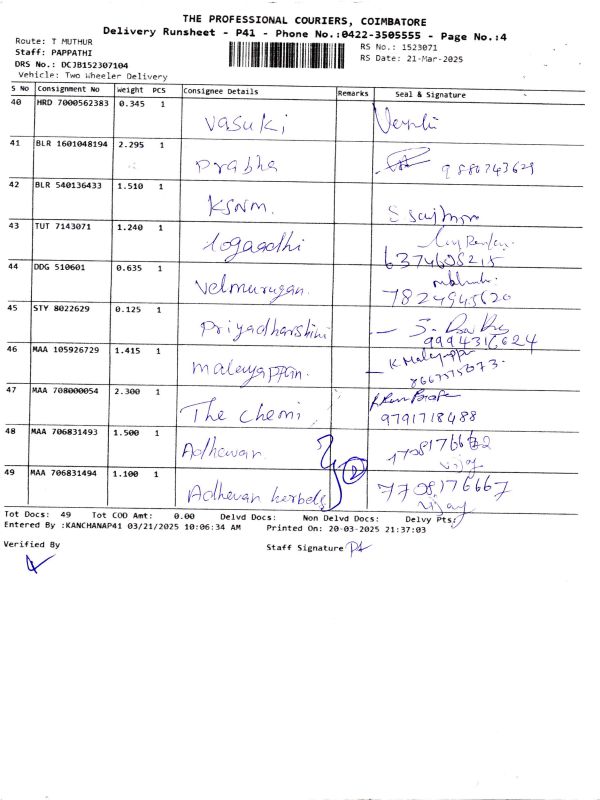 THE PROFESSIONAL COURIERS, COIMBATORE
Delivery Runsheet - P41 - Phone No.:0422-3505555 - Page No.:4
Route: T MUTHUR
RS No.: 1523071
Staff: PAPPATHI
RS Date: 21-Mar-2025
DRS No.: DCJB152307104
Vehicle: Two Wheeler Delivery
S No Consignment No Weight PCS Consignee Details Remarks Seal & Signature
40 HRD 7000562383 0.345 1 Vasuki
41 BLR 1601048194 2.295 1 Prabha 9886743629
42 BLR 540136433 1.510 1 KSNM.
43 TUT 7143071 1.240 1 logaadhi 6374608215
44 DDG 510601 0.635 1 Velmurugan. 7824945620
45 STY 8022629 0.125 1 Priyadharshini 9994316624
46 MAA 105926729 1.415 1 Malayappan. K Malayappan 8667575073.
47 MAA 708000054 2.300 1 The Chemi 9791718488
48 MAA 706831493 1.500 1 Adhavan Vijay
49 MAA 706831494 1.100 1 Adhevan herbals 7708176667
Vijay
Tot Docs: 49 Tot COD Amt: 0.00 Delvd Docs: Non Delvd Docs: Delvy Pts:
Entered By :KANCHANAP41 03/21/2025 10:06:34 AM Printed On: 20-03-2025 21:37:03
Verified By
Staff Signature